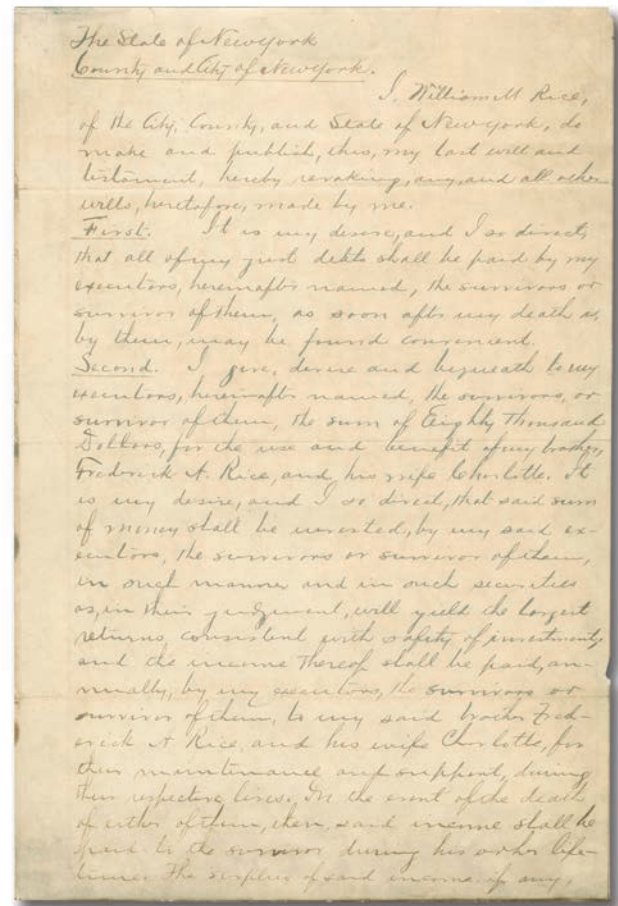 The State of New York
County and City of New York.
I, William M Rice,
of the City, County, and State of New York, do
make and publish, this, my last will and
testament, hereby revoking, any, and all other
wills, heretofore, made by me.
First. It is my desire, and I so direct,
that all of my just debts shall be paid by my
executors, hereinafter named, the survivors or
survivor of them, as soon after my death as,
by them, may be found convenient.
Second. I give, devise and bequeath to my
executors, hereinafter named, the survivors, or
survivor of them, the sum of Eighty Thousand
Dollars, for the use and benefit of my brother,
Frederick A. Rice, and his wife Charlotte. It
is my desire, and I so direct, that said sum
of money shall be invested, by my said ex-
ecutors, the survivors or survivor of them,
in such manner and in such securities
as, in their judgment, will yield the largest
returns, consistent with safety of investment,
and the income thereof shall be paid, an-
nually, by my executors, the survivors or
survivor of them, to my said brother Fred-
erick A Rice, and his wife Charlotte, for
their maintenance and support, during
their respective lives. In the event of the death
of either of them, then, said income shall be
paid to the survivor, during his or her life-
time. The surplus of said income if any,